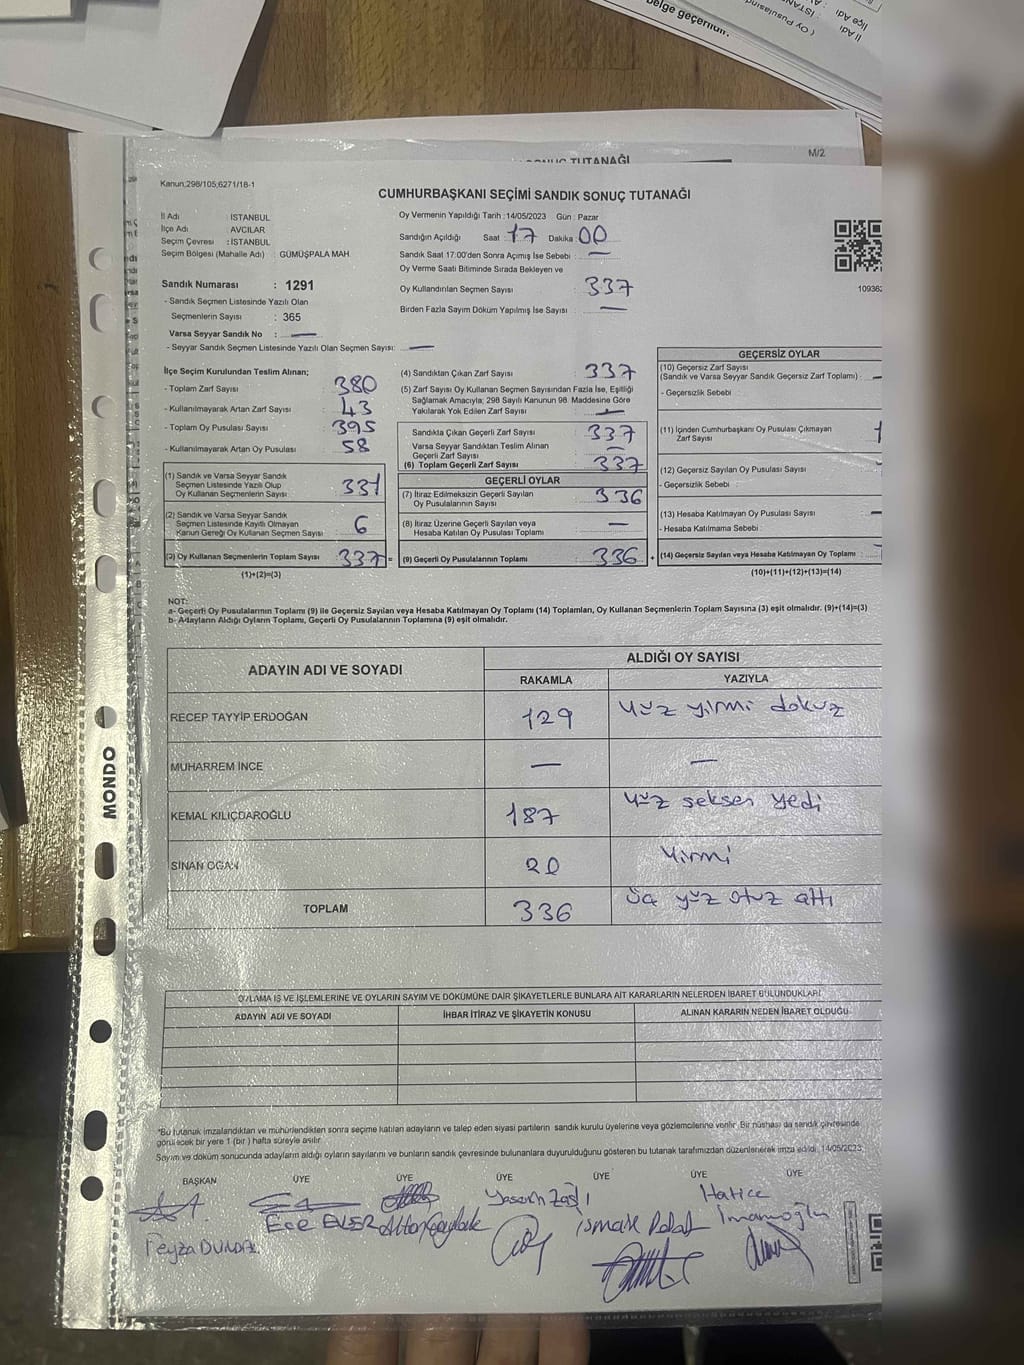 belge geçerlidir.
SONUÇ TUTANAĞI
M/2
Kanun;298/105;6271/18-1
CUMHURBAŞKANI SEÇİMİ SANDIK SONUÇ TUTANAĞI
İl Adı : İSTANBUL
İlçe Adı : AVCILAR
Seçim Çevresi : İSTANBUL
Seçim Bölgesi (Mahalle Adı) : GÜMÜŞPALA MAH
Sandık Numarası : 1291
- Sandık Seçmen Listesinde Yazılı Olan
Seçmenlerin Sayısı : 365
Varsa Seyyar Sandık No : —
- Seyyar Sandık Seçmen Listesinde Yazılı Olan Seçmen Sayısı: —
Oy Vermenin Yapıldığı Tarih : 14/05/2023 Gün : Pazar
Sandığın Açıldığı Saat 17 Dakika 00
Sandık Saat 17:00'den Sonra Açımış İse Sebebi : —
Oy Verme Saati Bitiminde Sırada Bekleyen ve
Oy Kullandırılan Seçmen Sayısı : 337
Birden Fazla Sayım Döküm Yapılmış İse Sayısı : —
10936
İlçe Seçim Kurulundan Teslim Alınan;
- Toplam Zarf Sayısı : 380
- Kullanılmayarak Artan Zarf Sayısı : 43
- Toplam Oy Pusulası Sayısı : 395
- Kullanılmayarak Artan Oy Pusulası : 58
(1) Sandık ve Varsa Seyyar Sandık
Seçmen Listesinde Yazılı Olup
Oy Kullanan Seçmenlerin Sayısı : 331
(2) Sandık ve Varsa Seyyar Sandık
Seçmen Listesinde Kayıtlı Olmayan
Kanun Gereği Oy Kullanan Seçmen Sayısı : 6
(3) Oy Kullanan Seçmenlerin Toplam Sayısı : 337 =
(1)+(2)=(3)
(4) Sandıktan Çıkan Zarf Sayısı : 337
(5) Zarf Sayısı Oy Kullanan Seçmen Sayısından Fazla İse, Eşitliği
Sağlamak Amacıyla; 298 Sayılı Kanunun 98. Maddesine Göre
Yakılarak Yok Edilen Zarf Sayısı : —
Sandıkta Çıkan Geçerli Zarf Sayısı : 337
Varsa Seyyar Sandıktan Teslim Alınan
Geçerli Zarf Sayısı : —
(6) Toplam Geçerli Zarf Sayısı : 337
GEÇERLİ OYLAR
(7) İtiraz Edilmeksizin Geçerli Sayılan
Oy Pusulalarının Sayısı : 336
(8) İtiraz Üzerine Geçerli Sayılan veya
Hesaba Katılan Oy Pusulası Toplamı : —
(9) Geçerli Oy Pusulalarının Toplamı : 336 +
GEÇERSİZ OYLAR
(10) Geçersiz Zarf Sayısı
(Sandık ve Varsa Seyyar Sandık Geçersiz Zarf Toplamı) : —
- Geçersizlik Sebebi :
(11) İçinden Cumhurbaşkanı Oy Pusulası Çıkmayan
Zarf Sayısı : 1
(12) Geçersiz Sayılan Oy Pusulası Sayısı :
- Geçersizlik Sebebi :
(13) Hesaba Katılmayan Oy Pusulası Sayısı : —
- Hesaba Katılmama Sebebi :
(14) Geçersiz Sayılan veya Hesaba Katılmayan Oy Toplamı :
(10)+(11)+(12)+(13)=(14)
NOT:
a- Geçerli Oy Pusulalarının Toplamı (9) ile Geçersiz Sayılan veya Hesaba Katılmayan Oy Toplamı (14) Toplamları, Oy Kullanan Seçmenlerin Toplam Sayısına (3) eşit olmalıdır. (9)+(14)=(3)
b- Adayların Aldığı Oyların Toplamı, Geçerli Oy Pusulalarının Toplamına (9) eşit olmalıdır.
ADAYIN ADI VE SOYADI
ALDIĞI OY SAYISI
RAKAMLA YAZIYLA
RECEP TAYYİP ERDOĞAN 129 Yüz yirmi dokuz
MUHARREM İNCE — —
KEMAL KILIÇDAROĞLU 187 Yüz seksen yedi
SİNAN OĞAN 20 Yirmi
TOPLAM 336 Üç yüz otuz altı
OYLAMA İŞ VE İŞLEMLERİNE VE OYLARIN SAYIM VE DÖKÜMÜNE DAİR ŞİKAYETLERLE BUNLARA AİT KARARLARIN NELERDEN İBARET BULUNDUKLARI
ADAYIN ADI VE SOYADI İHBAR İTİRAZ VE ŞİKAYETİN KONUSU ALINAN KARARIN NEDEN İBARET OLDUĞU
*Bu tutanak imzalandıktan ve mühürlendikten sonra seçime katılan adayların ve talep eden siyasi partilerin sandık kurulu üyelerine veya gözlemcilerine verilir. Bir nüshası da sandık çevresinde
görülecek bir yere 1 (bir) hafta süreyle asılır.
Sayım ve döküm sonucunda adayların aldığı oyların sayılarını ve bunların sandık çevresinde bulunanlara duyurulduğunu gösteren bu tutanak tarafımızdan düzenlenerek imza edildi. 14/05/2023
BAŞKAN ÜYE ÜYE ÜYE ÜYE ÜYE ÜYE
Feyza DUNDAR
Ece EVLER
Yasemin Zaslı
İsmail Polat
Hatice
İmamoğlu
MONDO